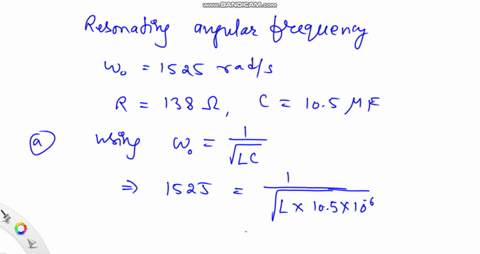 WWW.BANDICAM.COM
Resonating angular frequency
ω₀ = 1525 rad/s
R = 138 Ω, C = 10.5 μF
(a) using ω₀ = 1/√LC
⇒ 1525 = 1/√L × 10.5 × 10⁻⁶